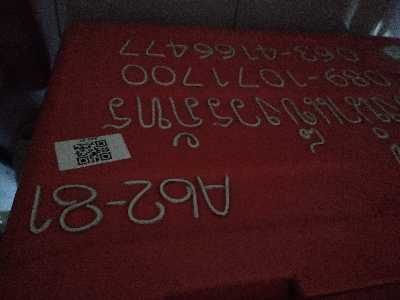 A62-81
น้ำแข็งวรภัทร
089-1071700
063-4166477